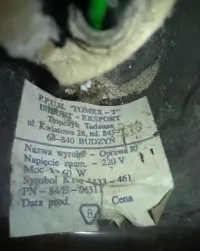 P.P.U.H. "TOMEX - T"
IMPORT - EKSPORT
Tadeusz
ul. Kwiatowa 28, tel. 845-
64-840 BUDZYŃ
Nazwa wyrobu - Oprawa
Napięcie znam. - 220 V
Moc - 60 W
Symbol 133 - 461
PN - 84/E - 06311
Data prod.
Cena
B